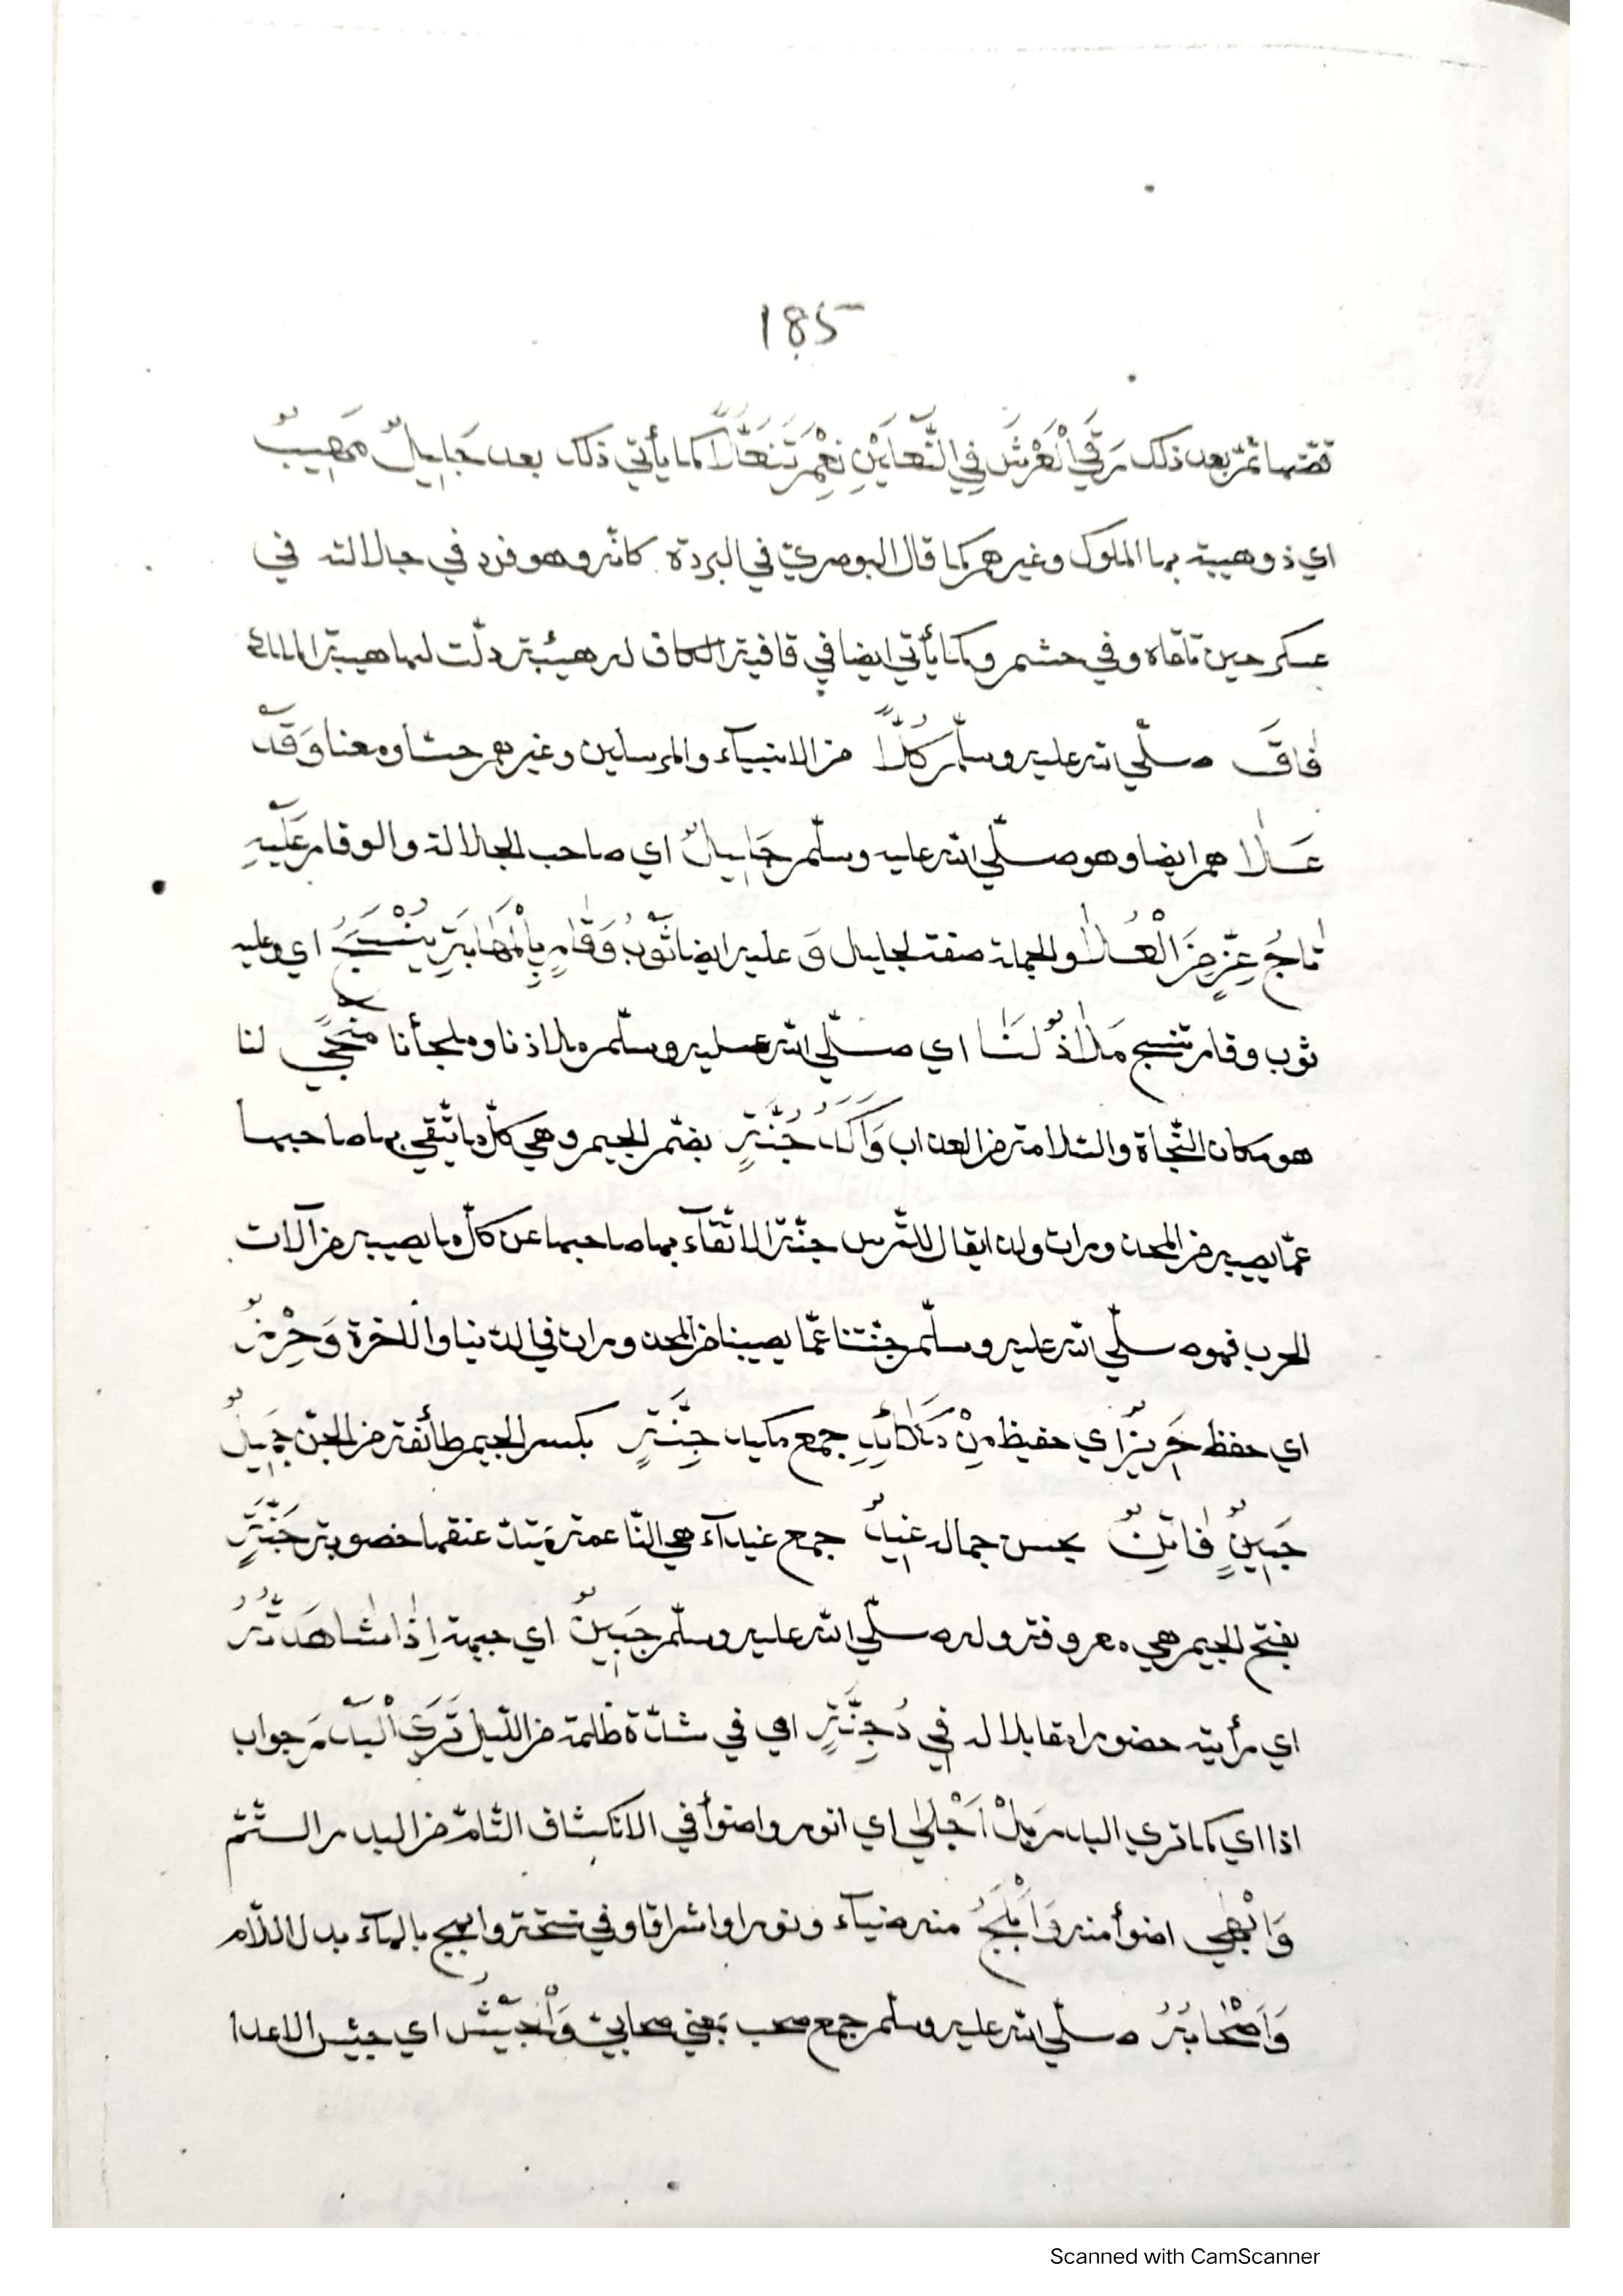 185
قصّتها ثمّ بعد ذلك رَقَي الْعَرْشَ فِي النَّعْلَيْنِ نِعْمَ تَنَعُّلًا كما يأتي ذلك بعد جَلِيلٌ مَهِيبٌ
اي ذو هيبة بها الملوك وغيرهم كما قال البوصريّ في البردة كانّه وهو فرد في جلالته في
عسكر حين تلقاه وفي حشم وكما يأتي ايضا في قافية الكاف له هيبة دلّت لها هيبة الملك
فَاقَ صلّي الله عليه وسلّم كُلًّا من الانبياء والمرسلين وغيرهم حسّا ومعنا وَقَدْ
عَلَا هم ايضا وهو صلّي الله عليه وسلّم جَلِيلٌ اي صاحب الجلالة والوقار عَلَيْهِ
تَاجُ عِزٍّ مِنَ الْعُلَا والجملة صفة لجليل وَ عليه ايضا ثَوْبُ وَقَارٍ بِالْمَهَابَةِ يُنْسَجُ اي وعليه
ثوب وقار تنسج مَلَاذٌ لَنَا اي صلّي الله عليه وسلّم ملاذنا وملجأنا مَنْجًي لنا
هو مكان النّجاة والسّلامة من العذاب وَآكَدُ جُنَّةٍ بضمّ الجيم وهي كلّ ما يتّقي بها صاحبها
عمّا يصيبه من المحذورات ولذا يقال للتّرس جنّة لاتّقاء بها صاحبها عن كلّ ما يصيبه من آلات
الحرب فهو صلّي الله عليه وسلّم جنّتنا عمّا يصيبنا من المحذورات في الدّنيا والاخرة وَحِرْزٌ
اي حفظ حَرِيزٌ اي حفيظ مِنْ مَكَائِدِ جمع مكيد جِنَّةٍ بكسر الجيم طائفة من الجنّ جَمِيلٌ
جَبِينٍ فَاتِنٌ بحسن جماله غِيدُ جمع غيداء هي النّاعمة يتثنّ عنقها خصوبة جَنَّةٍ
بفتح الجيم هي معروفة وله صلّي الله عليه وسلّم جَبِينٌ اي جبهة اِذَا شَاهَدْتَهُ
اي رأيته حضورا مقابلا له فِي دُجِنَّةٍ اي في شدّة ظلمة من اللّيل تَرَي الْبَدْرَ جواب
اذا اي كما تري البدر بَلْ اَجْلَي اي انور واضوأ في الانكشاف التّامّ من البدر الستّتمّ
وَاَبْهَي اضوأ منه وَاَبْلَجُ منه ضياء ونورا واشراقا وفي نسخة وابهج بالهاء بدل اللّام
وَاَصْحَابُهُ صلّي الله عليه وسلّم جمع صحب بمعني صحابيّ وَالْجَيْشُ اي جيش الاعدا
Scanned with CamScanner